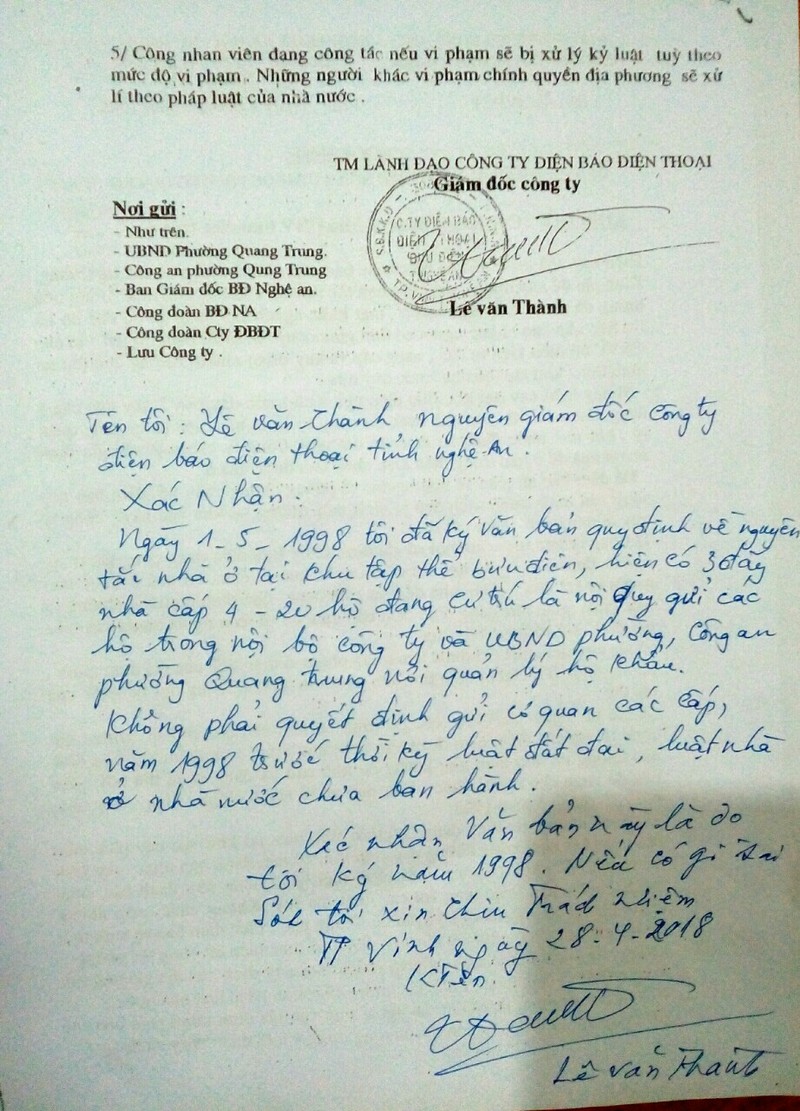 5/ Công nhan viên đang công tác nếu vi phạm sẽ bị xử lý kỷ luật tuỳ theo
mức độ vi phạm . Những người khác vi phạm chính quyền địa phương sẽ xử
lí theo pháp luật của nhà nước .
TM LÃNH ĐẠO CÔNG TY ĐIỆN BÁO ĐIỆN THOẠI
Giám đốc công ty
C.TY ĐIỆN BÁO
ĐIỆN THOẠI
Lê văn Thành
Nơi gửi :
- Như trên.
- UBND Phường Quang Trung.
- Công an phường Qung Trung
- Ban Giám đốc BĐ Nghệ an.
- Công đoàn BĐ NA
- Công đoàn Cty ĐBĐT
- Lưu Công ty .
Tên tôi : Lê văn Thành nguyên giám đốc Công ty
điện báo điện thoại tỉnh nghệ-An .
Xác Nhận .
Ngày 1-5-1998 tôi đã ký văn bản quy định về nguyên
tắc nhà ở tại khu tập thể bưu điện, hiện có 3 dãy
nhà cấp 4 - 20 hộ đang cư trú là nội quy gửi các
hộ trong nội bộ công ty và UBND phường, Công an
phường Quang trung nơi quản lý hộ khẩu.
Không phải quyết định gửi cơ quan các cấp,
năm 1998 trước thời kỳ luật đất đai, luật nhà
ở nhà nước chưa ban hành .
Xác nhận Văn bản này là do
tôi ký năm 1998 . Nếu có gì sai
Sót tôi xin chịu Trách nhiệm
TP Vinh ngày 28-4-2018
Lê văn Thành